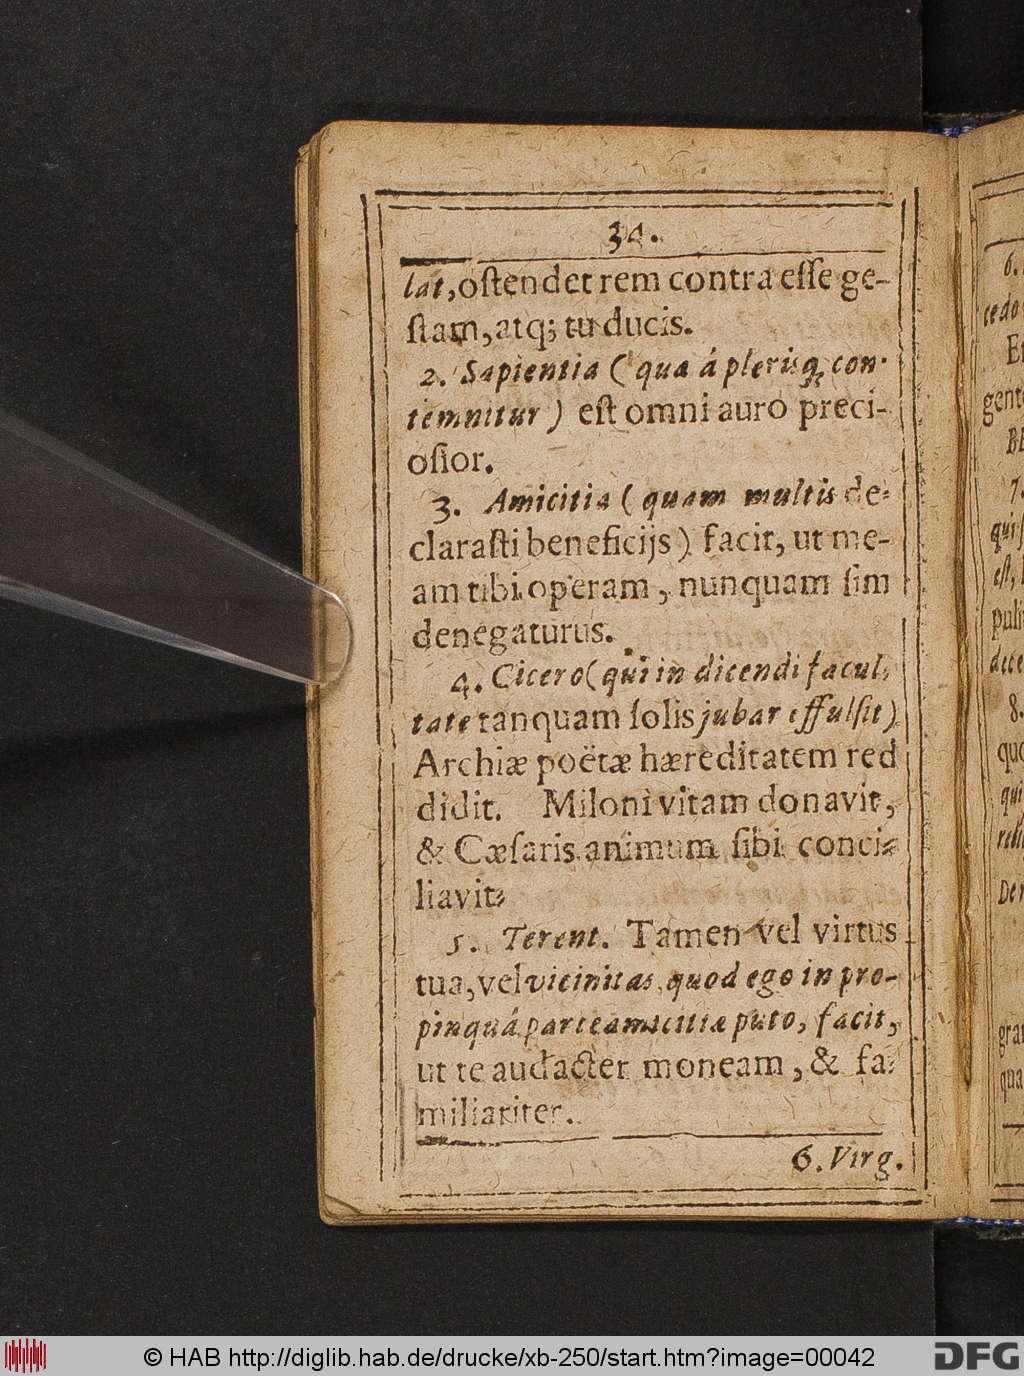 34.
lat, oſtendet rem contra eſſe ge-
ſtam, atq; tu ducis.
2. Sapientia (qua á plerisq; con-
temnitur) eſt omni auro preci-
oſior.
3. Amicitia (quam multis de-
claraſti beneficijs) facit, ut me-
am tibi operam, nunquam ſim
denegaturus.
4. Cicero (qui in dicendi facul-
tate tanquam ſolis jubar effulſit)
Archiæ poëtæ hæreditatem red
didit. Miloni vitam donavit,
& Cæſaris animum ſibi conci-
liavit.
5. Terent. Tamen vel virtus
tua, vel vicinitas, quod ego in pro-
pinquâ parte amicitiæ puto, facit,
ut te audacter moneam, & fa-
miliariter.
6. Virg.
6.
cedo
gent
7.
qui
eſt,
puli
dece
8.
quo
qui
reli
De
gra
qua
© HAB http://diglib.hab.de/drucke/xb-250/start.htm?image=00042
DFG